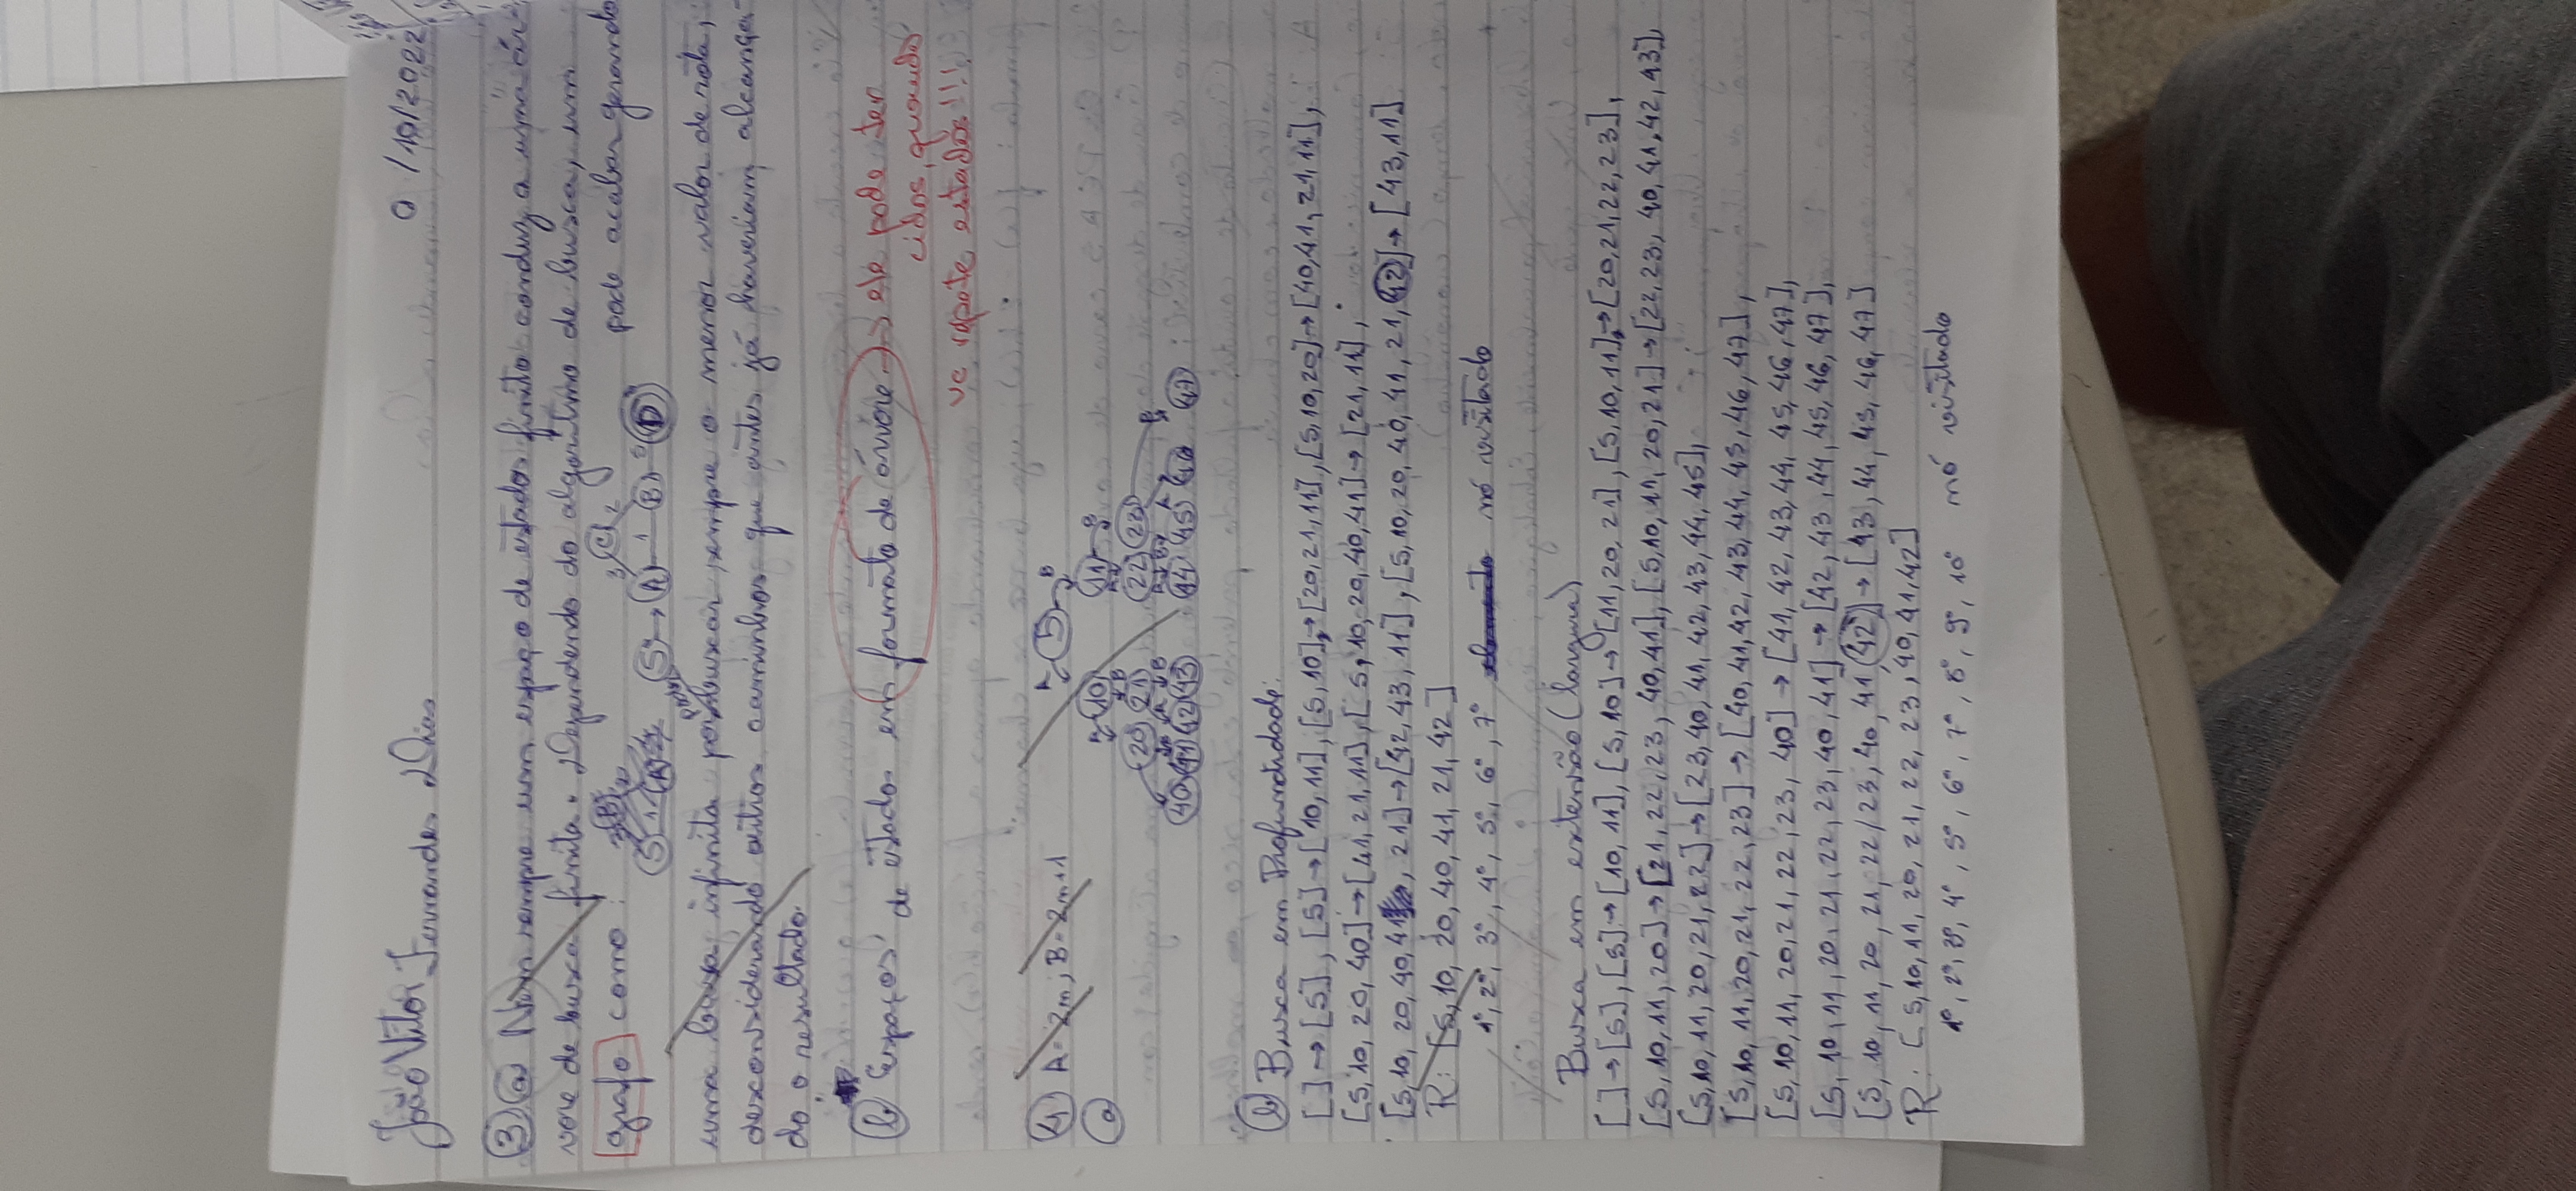 João Vitor Fernandes Dias /10/2022
3 a Nem sempre um espaço de estados finito conduz a uma ár-
vore de busca finita. Dependendo do algoritmo de busca, um
grafo como: S → A 1 B 5 D 3 C 2 pode acabar gerando
uma busca infinita por poder buscar sempre o menor valor de rota,
desconsiderando outros caminhos que antes já haveriam alcança-
do o resultado.
b Espaços de estados em formato de árvore → ele pode ter
ciclos, quando
vc repete estados!!!
4 A = 2n; B = 2n+1
a
A 5 B
A 10 11 B
B A
20 21 22 23 B
B A B A B A
40 41 42 43 44 45 46 47
b Busca em Profundidade:
[ ] → [5], [5] → [10, 11], [5, 10] → [20, 21, 11], [5, 10, 20] → [40, 41, 21, 11],
[5, 10, 20, 40] → [41, 21, 11], [5, 10, 20, 40, 41] → [21, 11],
[5, 10, 20, 40, 41, 21] → [42, 43, 11], [5, 10, 20, 40, 41, 21, 42] → [43, 11]
R: [5, 10, 20, 40, 41, 21, 42]
1°, 2°, 3°, 4°, 5°, 6°, 7° nó visitado
Busca em extensão (largura)
[ ] → [5], [5] → [10, 11], [5, 10] → [11, 20, 21], [5, 10, 11] → [20, 21, 22, 23],
[5, 10, 11, 20] → [21, 22, 23, 40, 41], [5, 10, 11, 20, 21] → [22, 23, 40, 41, 42, 43],
[5, 10, 11, 20, 21, 22] → [23, 40, 41, 42, 43, 44, 45],
[5, 10, 11, 20, 21, 22, 23] → [40, 41, 42, 43, 44, 45, 46, 47],
[5, 10, 11, 20, 21, 22, 23, 40] → [41, 42, 43, 44, 45, 46, 47],
[5, 10, 11, 20, 21, 22, 23, 40, 41] → [42, 43, 44, 45, 46, 47],
[5, 10, 11, 20, 21, 22, 23, 40, 41, 42] → [43, 44, 45, 46, 47]
R: [5, 10, 11, 20, 21, 22, 23, 40, 41, 42]
1°, 2°, 3°, 4°, 5°, 6°, 7°, 8°, 9°, 10° nó visitado